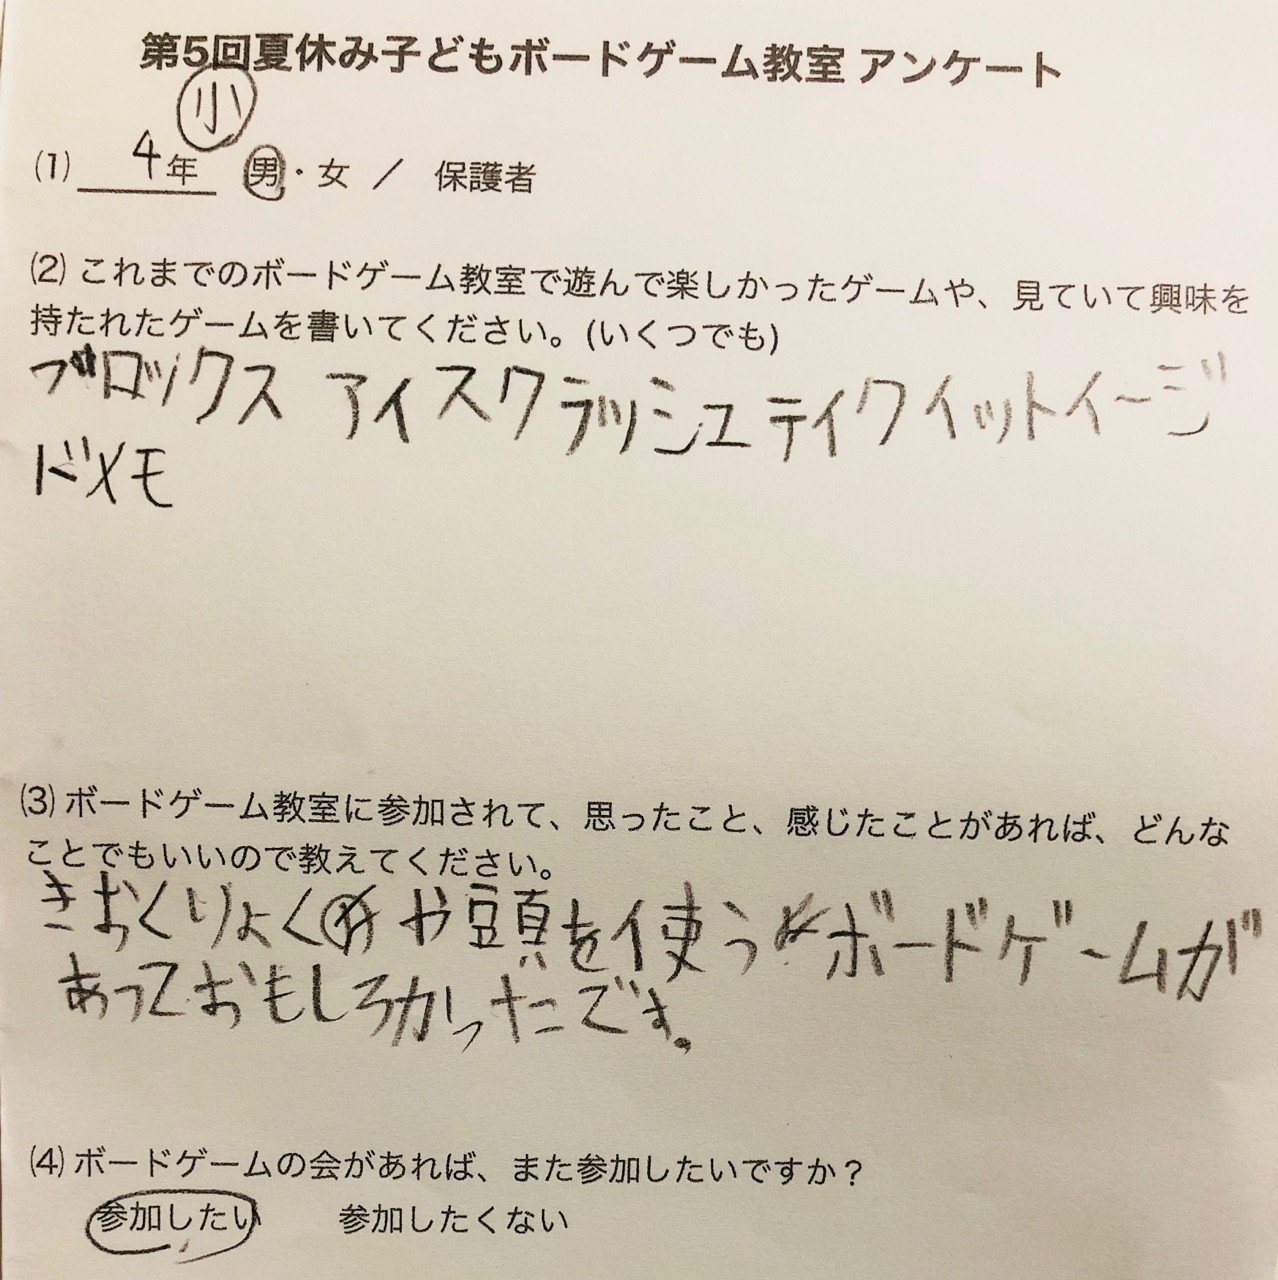 第5回夏休み子どもボードゲーム教室 アンケート
小
(1) 4年 男・女 / 保護者
(2) これまでのボードゲーム教室で遊んで楽しかったゲームや、見ていて興味を
持たれたゲームを書いてください。(いくつでも)
ブロックス アイスクラッシュ テイクイットイージ
ドメモ
(3) ボードゲーム教室に参加されて、思ったこと、感じたことがあれば、どんな
ことでもいいので教えてください。
きおくりょくや頭を使うボードゲームが
あっておもしろかったです。
(4) ボードゲームの会があれば、また参加したいですか？
参加したい 参加したくない